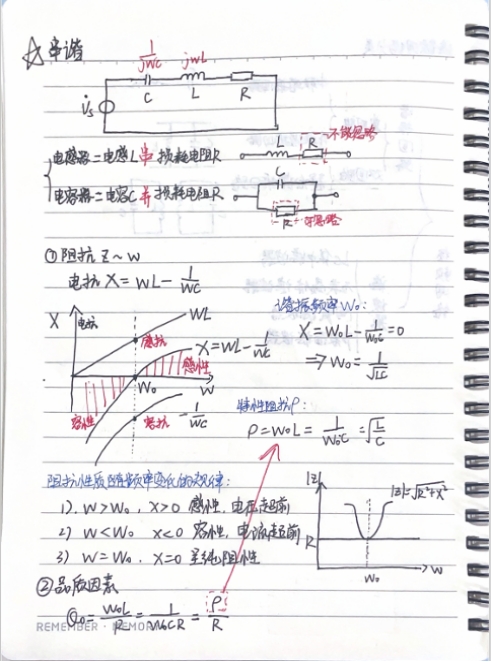 ☆串谐
1/jwC jwL
C L R
V̇s
电感器=电感L串损耗电阻R L R 不能忽略
电容器=电容C并损耗电阻R C R 可忽略
①阻抗Z~w
电抗X=wL-1/wC
谐振频率w₀:
X 电抗 wL
X=w₀L-1/w₀C=0
感抗 X=wL-1/wC
⇒w₀=1/√LC
感性
w₀ w
容性 容抗 -1/wC
特性阻抗ρ:
ρ=w₀L=1/w₀C=√L/C
阻抗性质随频率变化的规律:
1). w>w₀, x>0 感性,电压超前
2) w<w₀ x<0 容性,电流超前
3) w=w₀. X=0 呈纯阻性
|Z| |Z|=√R²+X²
R
w₀ w
②品质因素
Q₀=w₀L/R=1/w₀CR=ρ/R
REMEMBER · MEMO